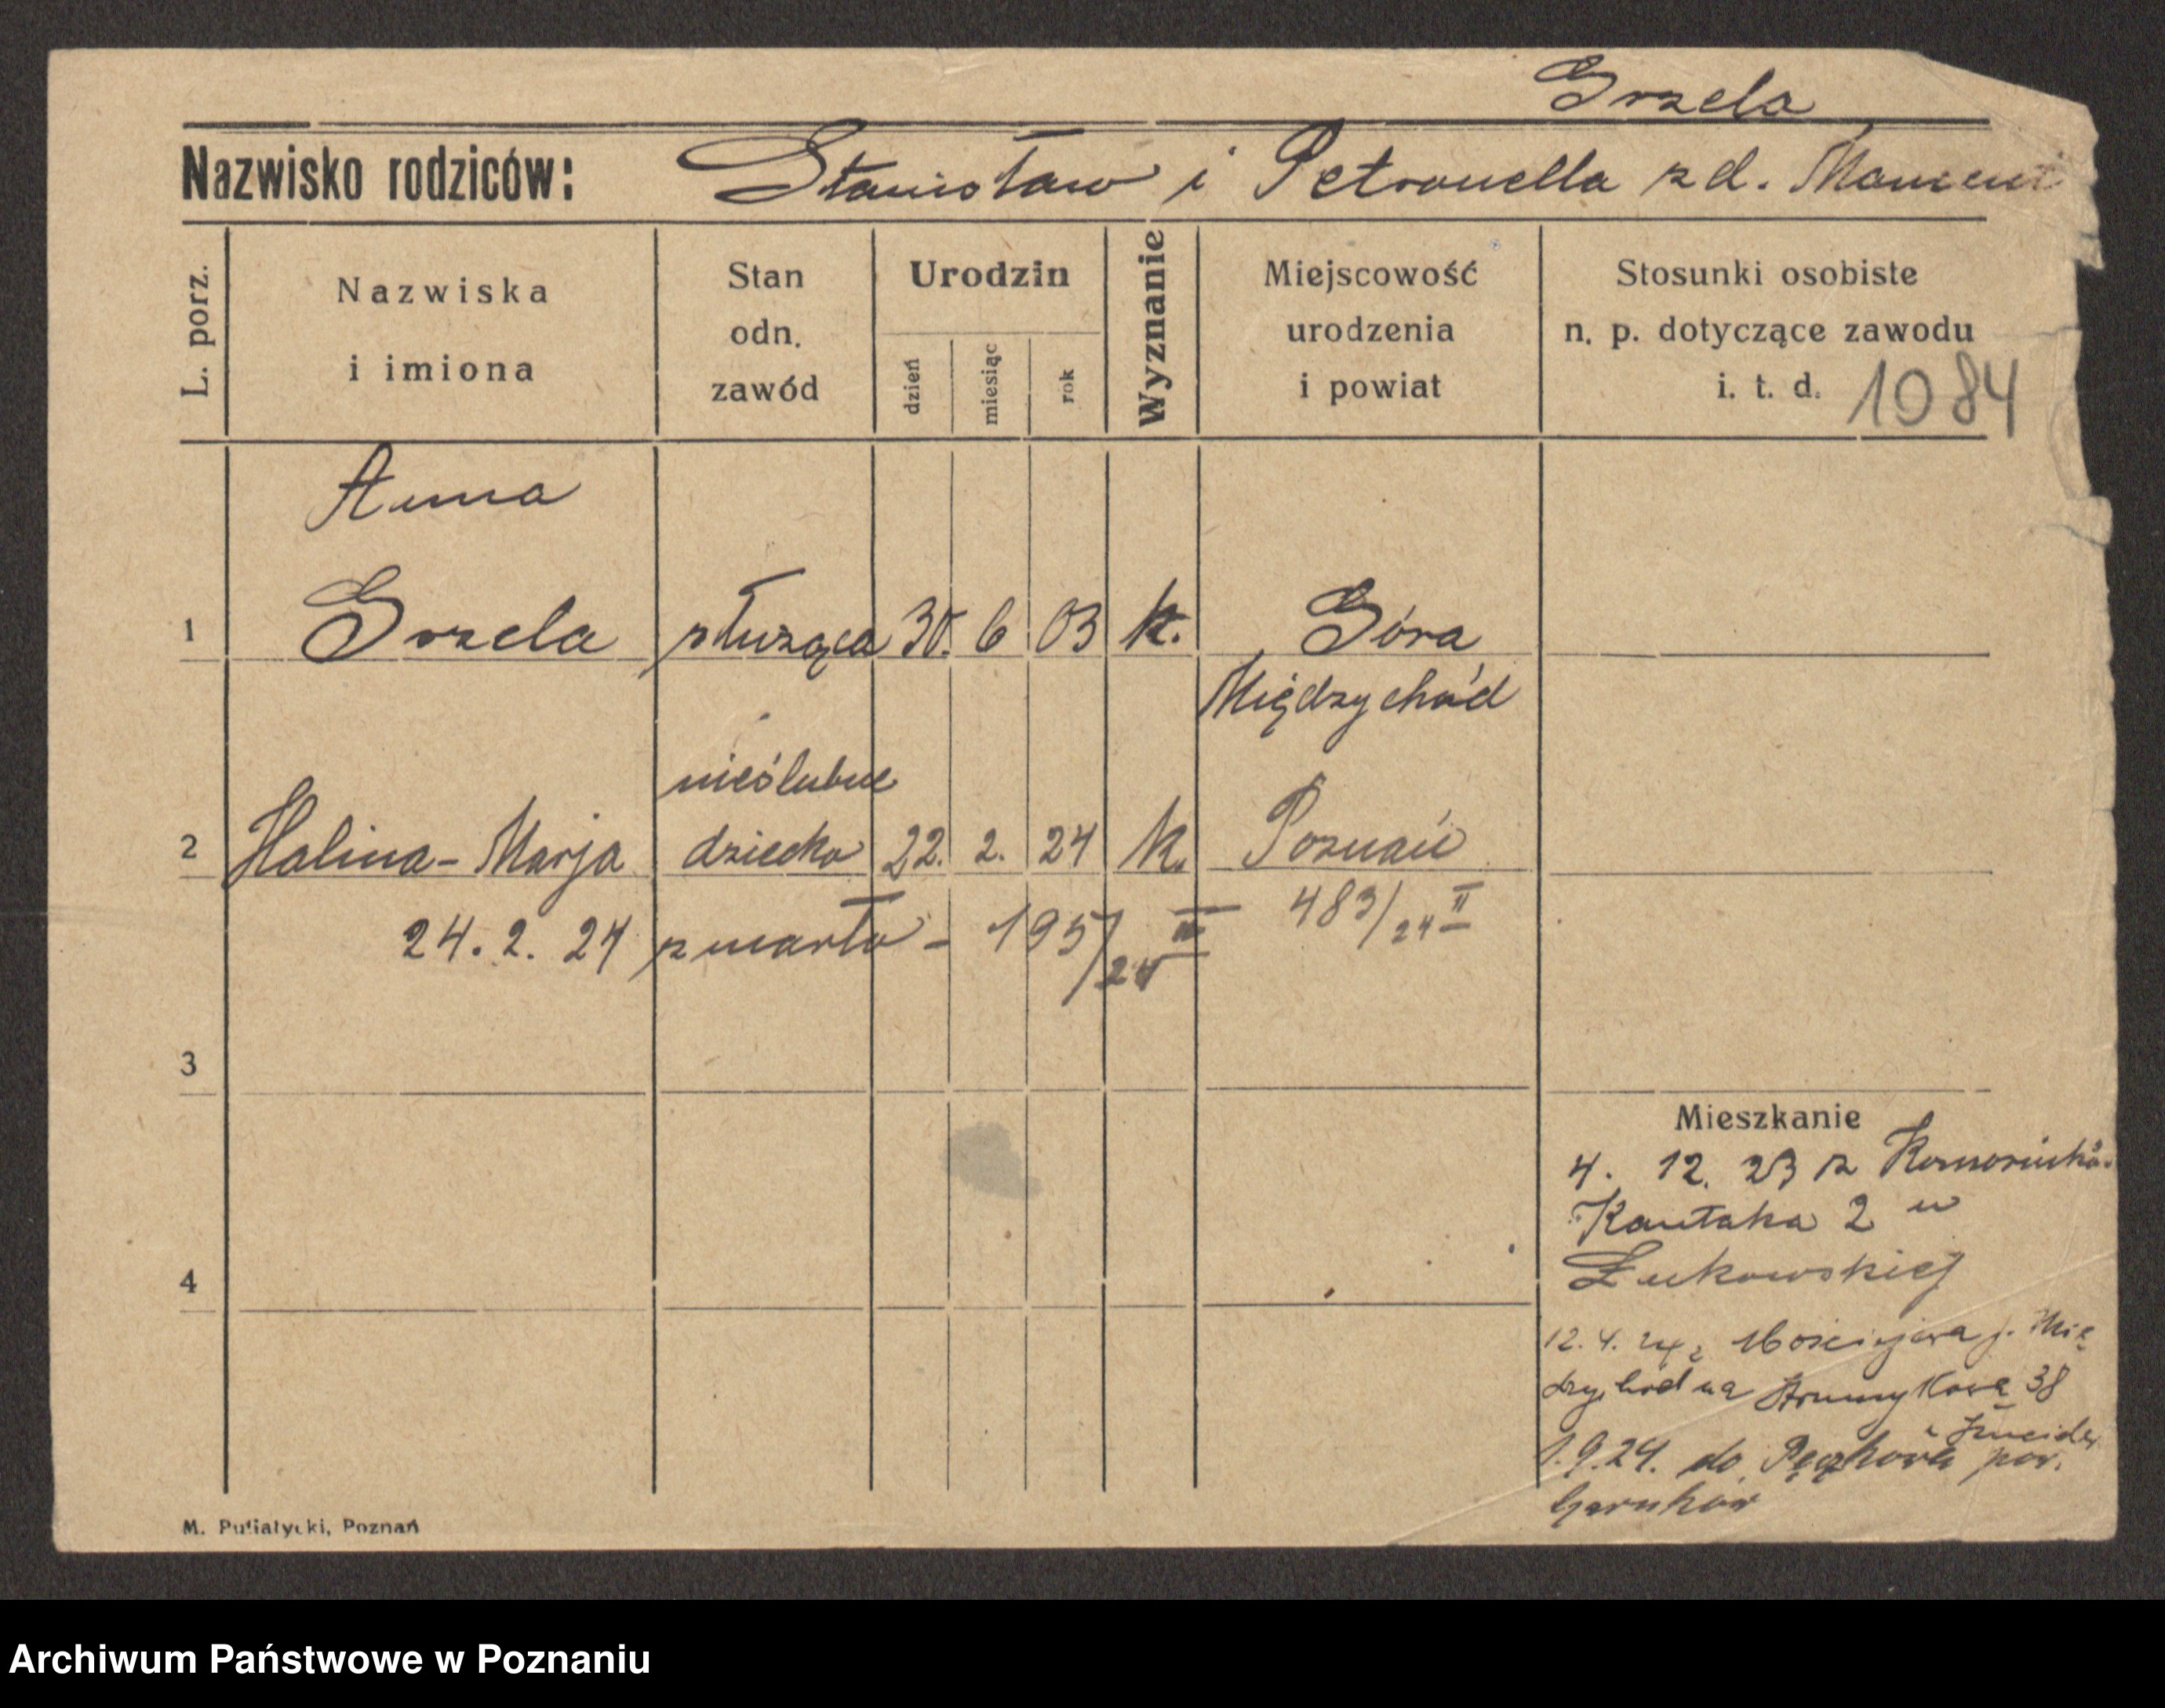 Grzela
Nazwisko rodziców: Stanisław i Petronella zd.
L. porz.
Nazwiska
i imiona
Stan
odn.
zawód
Urodzin
dzień
miesiąc
rok
Wyznanie
Miejscowość
urodzenia
i powiat
Stosunki osobiste
n. p. dotyczące zawodu
i. t. d. 1084
Anna
1 Grzela służąca 30. 6 03 k. Góra
Międzychód
nieślubne
2 Halina-Marja dziecko 22. 2. 24 k. Poznań
483/24 II
24. 2. 24 zmarło - 195/24 II
3
Mieszkanie
4. 12. 23 z
Kantaka 2 u
Żukowskiej
4
12. 4. 24 z p. Mię
dzychód na Strumykowa 38
1.9.24. do pow.
Czarnków
M. Putiatycki, Poznań
Archiwum Państwowe w Poznaniu